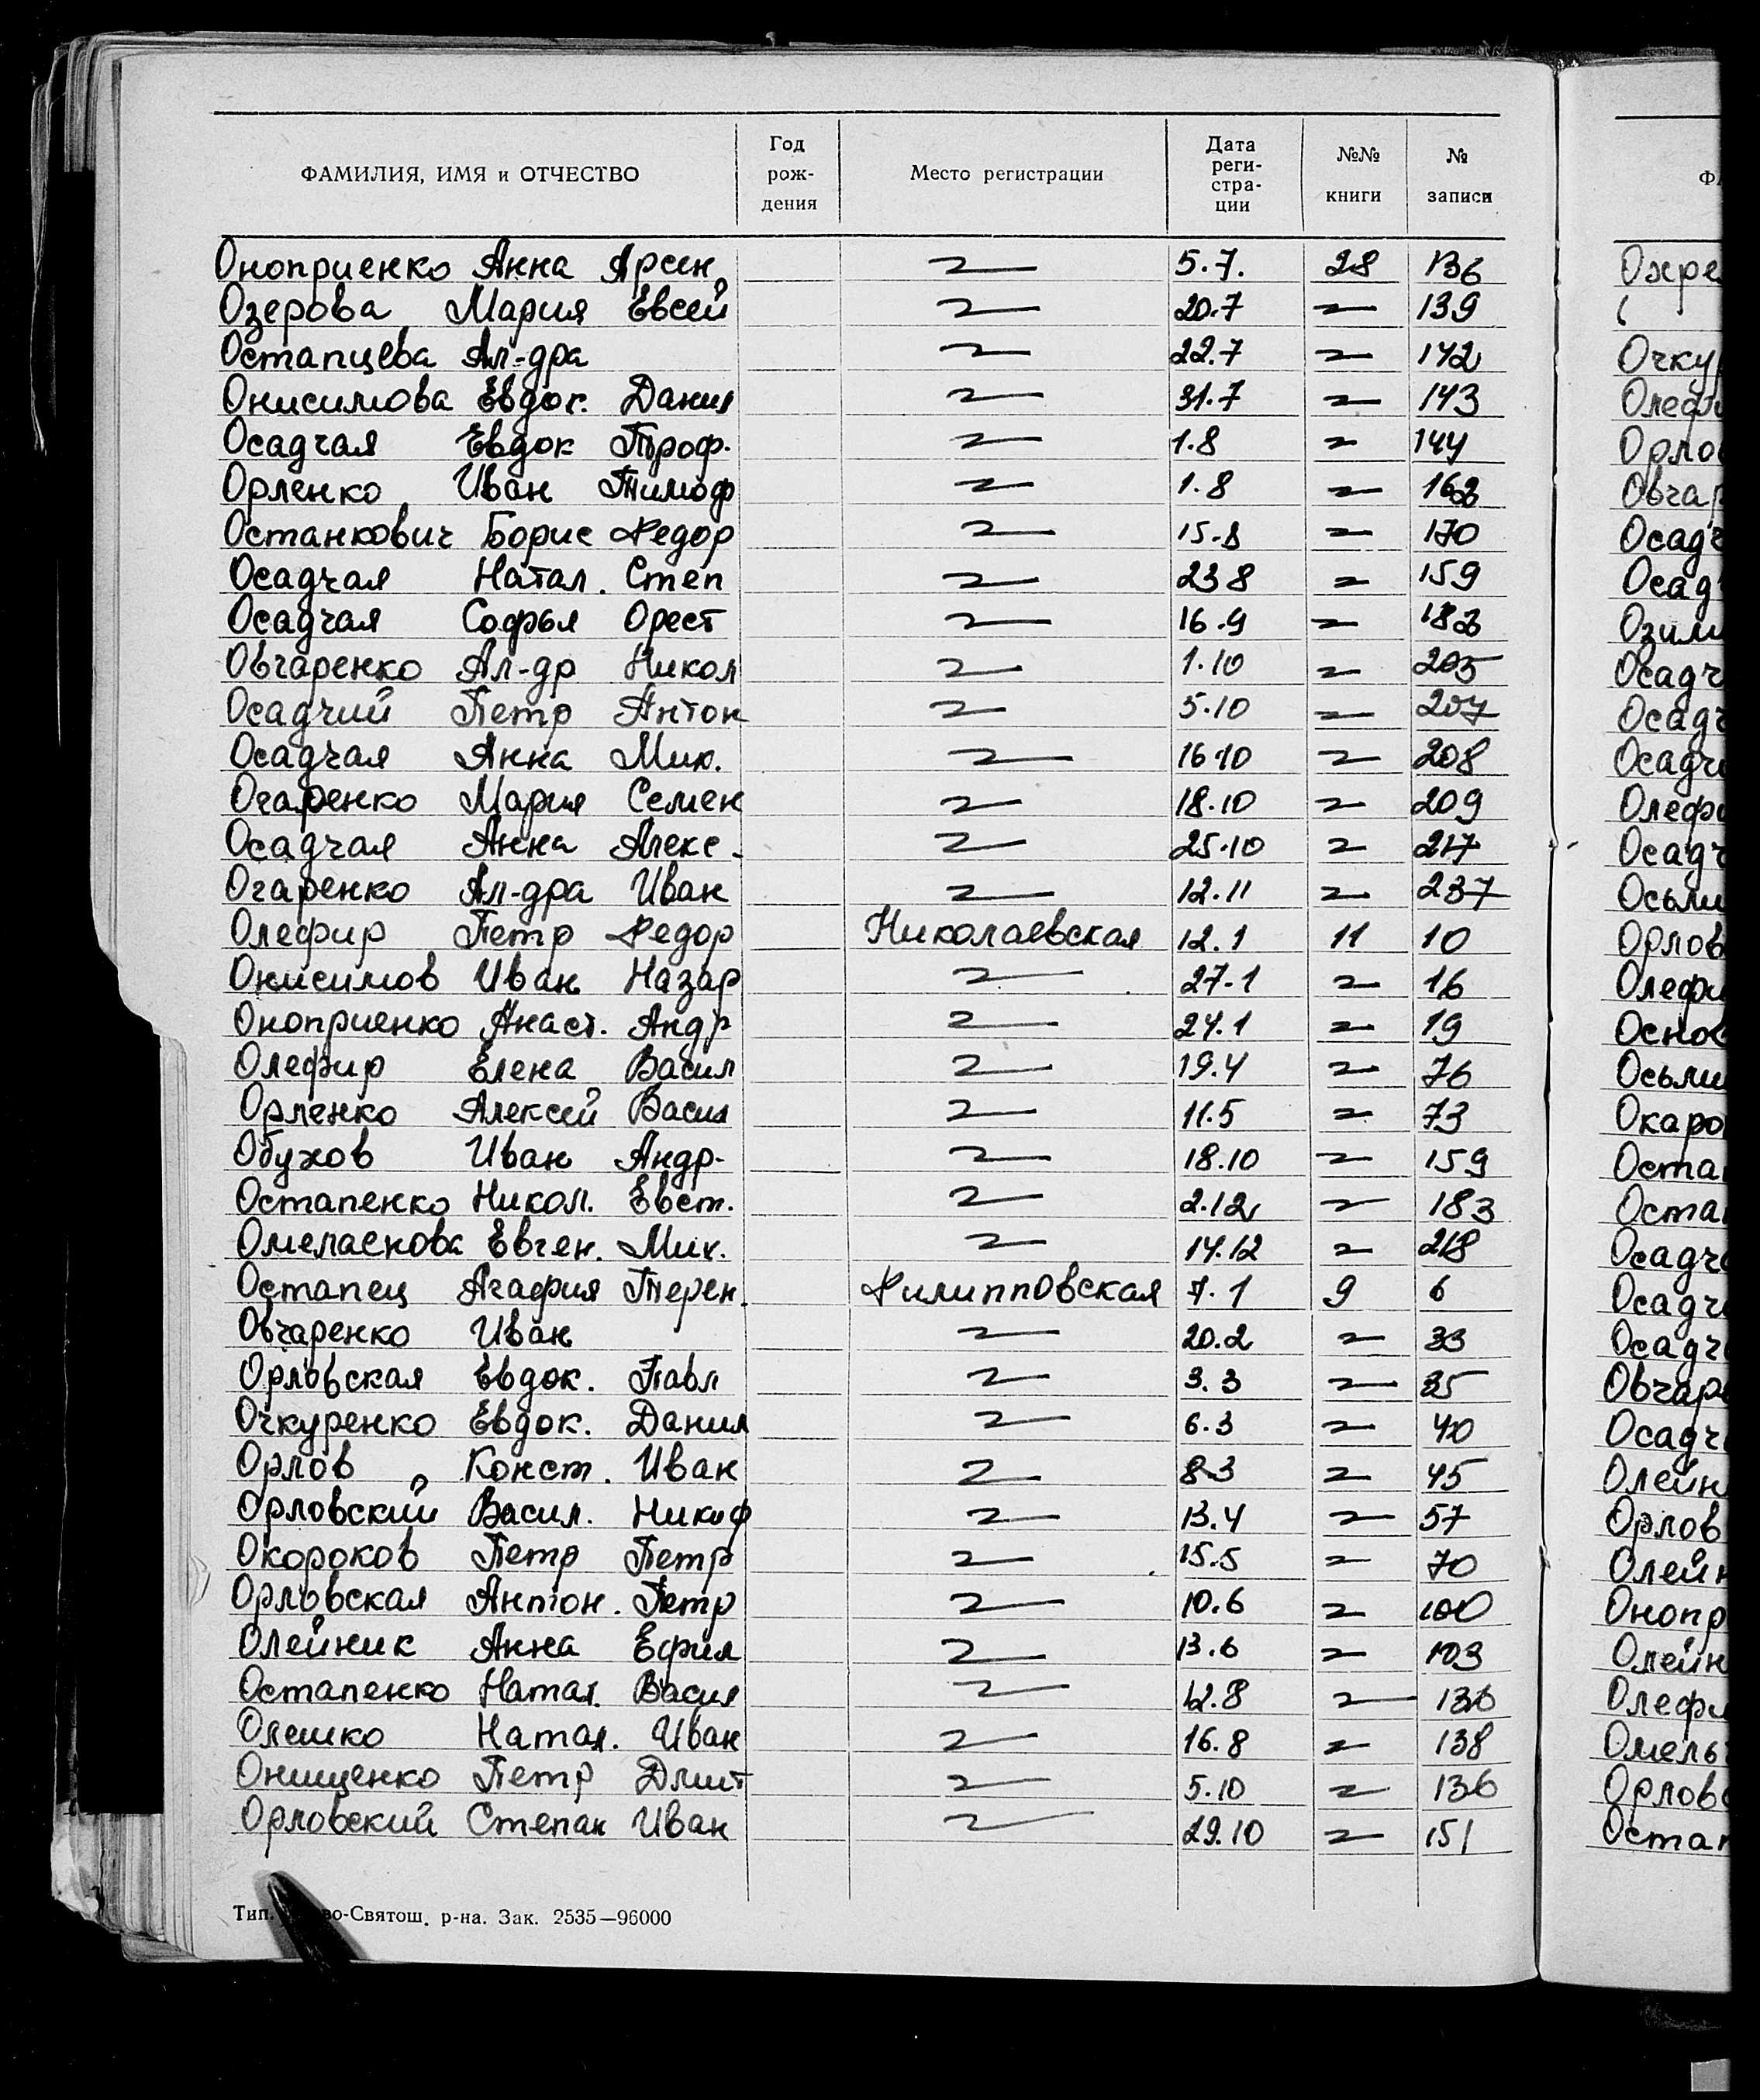 ФАМИЛИЯ, ИМЯ и ОТЧЕСТВО Год рождения Место регистрации Дата регистрации №№ книги № записи
Оноприенко Анна Арсен 〃 5.7. 28 136
Озерова Мария Евсей 〃 20.7 〃 139
Остапцева Ал-дра 〃 22.7 〃 142
Онисимова Евдок. Данил 〃 31.7 〃 143
Осадчая Евдок Троф. 〃 1.8 〃 144
Орленко Иван Тимоф 〃 1.8 〃
Останкович Борис Федор 〃 15.8 〃 170
Осадчая Натал. Степ 〃 23 8 〃 159
Осадчая Софья Орест 〃 16.9 〃
Овчаренко Ал-др Никол 〃 1.10 〃 205
Осадчий Петр Антон 〃 5.10 〃 207
Осадчая Анна Мих. 〃 16.10 〃 208
Огаренко Мария Семен 〃 18.10 〃 209
Осадчая Анна Алекс. 〃 25.10 〃 217
Огаренко Ал-дра Иван 〃 12.11 〃 237
Олефир Петр Федор Николаевская 12.1 11 10
Онисимов Иван Назар 〃 27.1 〃 16
Оноприенко Анаст. Андр 〃 24.1 〃 19
Олефир Елена Васил 〃 19.4 〃 76
Орленко Алексей Васил 〃 11.5 〃 73
Обухов Иван Андр. 〃 18.10 〃 159
Остапенко Никол. Евст. 〃 2.12 〃 183
Омеласнова Евген. Мих. 〃 14.12 〃 218
Остапец Агафия Терен. Филипповская 7.1 9 6
Овчаренко Иван 〃 20.2 〃 33
Орловская Евдок. Павл 〃 3.3 〃 35
Очкуренко Евдок. Данил 〃 6.3 〃 40
Орлов Конст. Иван 〃 8.3 〃 45
Орловский Васил. Никиф 〃 13.4 〃 57
Окороков Петр Петр 〃 15.5 〃 70
Орловская Антон. Петр 〃 10.6 〃 100
Олейник Анна Ефим 〃 13.6 〃 103
Остапенко Натал. Васил 〃 12.8 〃 136
Олешко Натал. Иван 〃 16.8 〃 138
Онищенко Петр Дмит 〃 5.10 〃 136
Орловский Степан Иван 〃 29.10 〃 151
Тип. во-Святош. р-на. Зак. 2535—96000